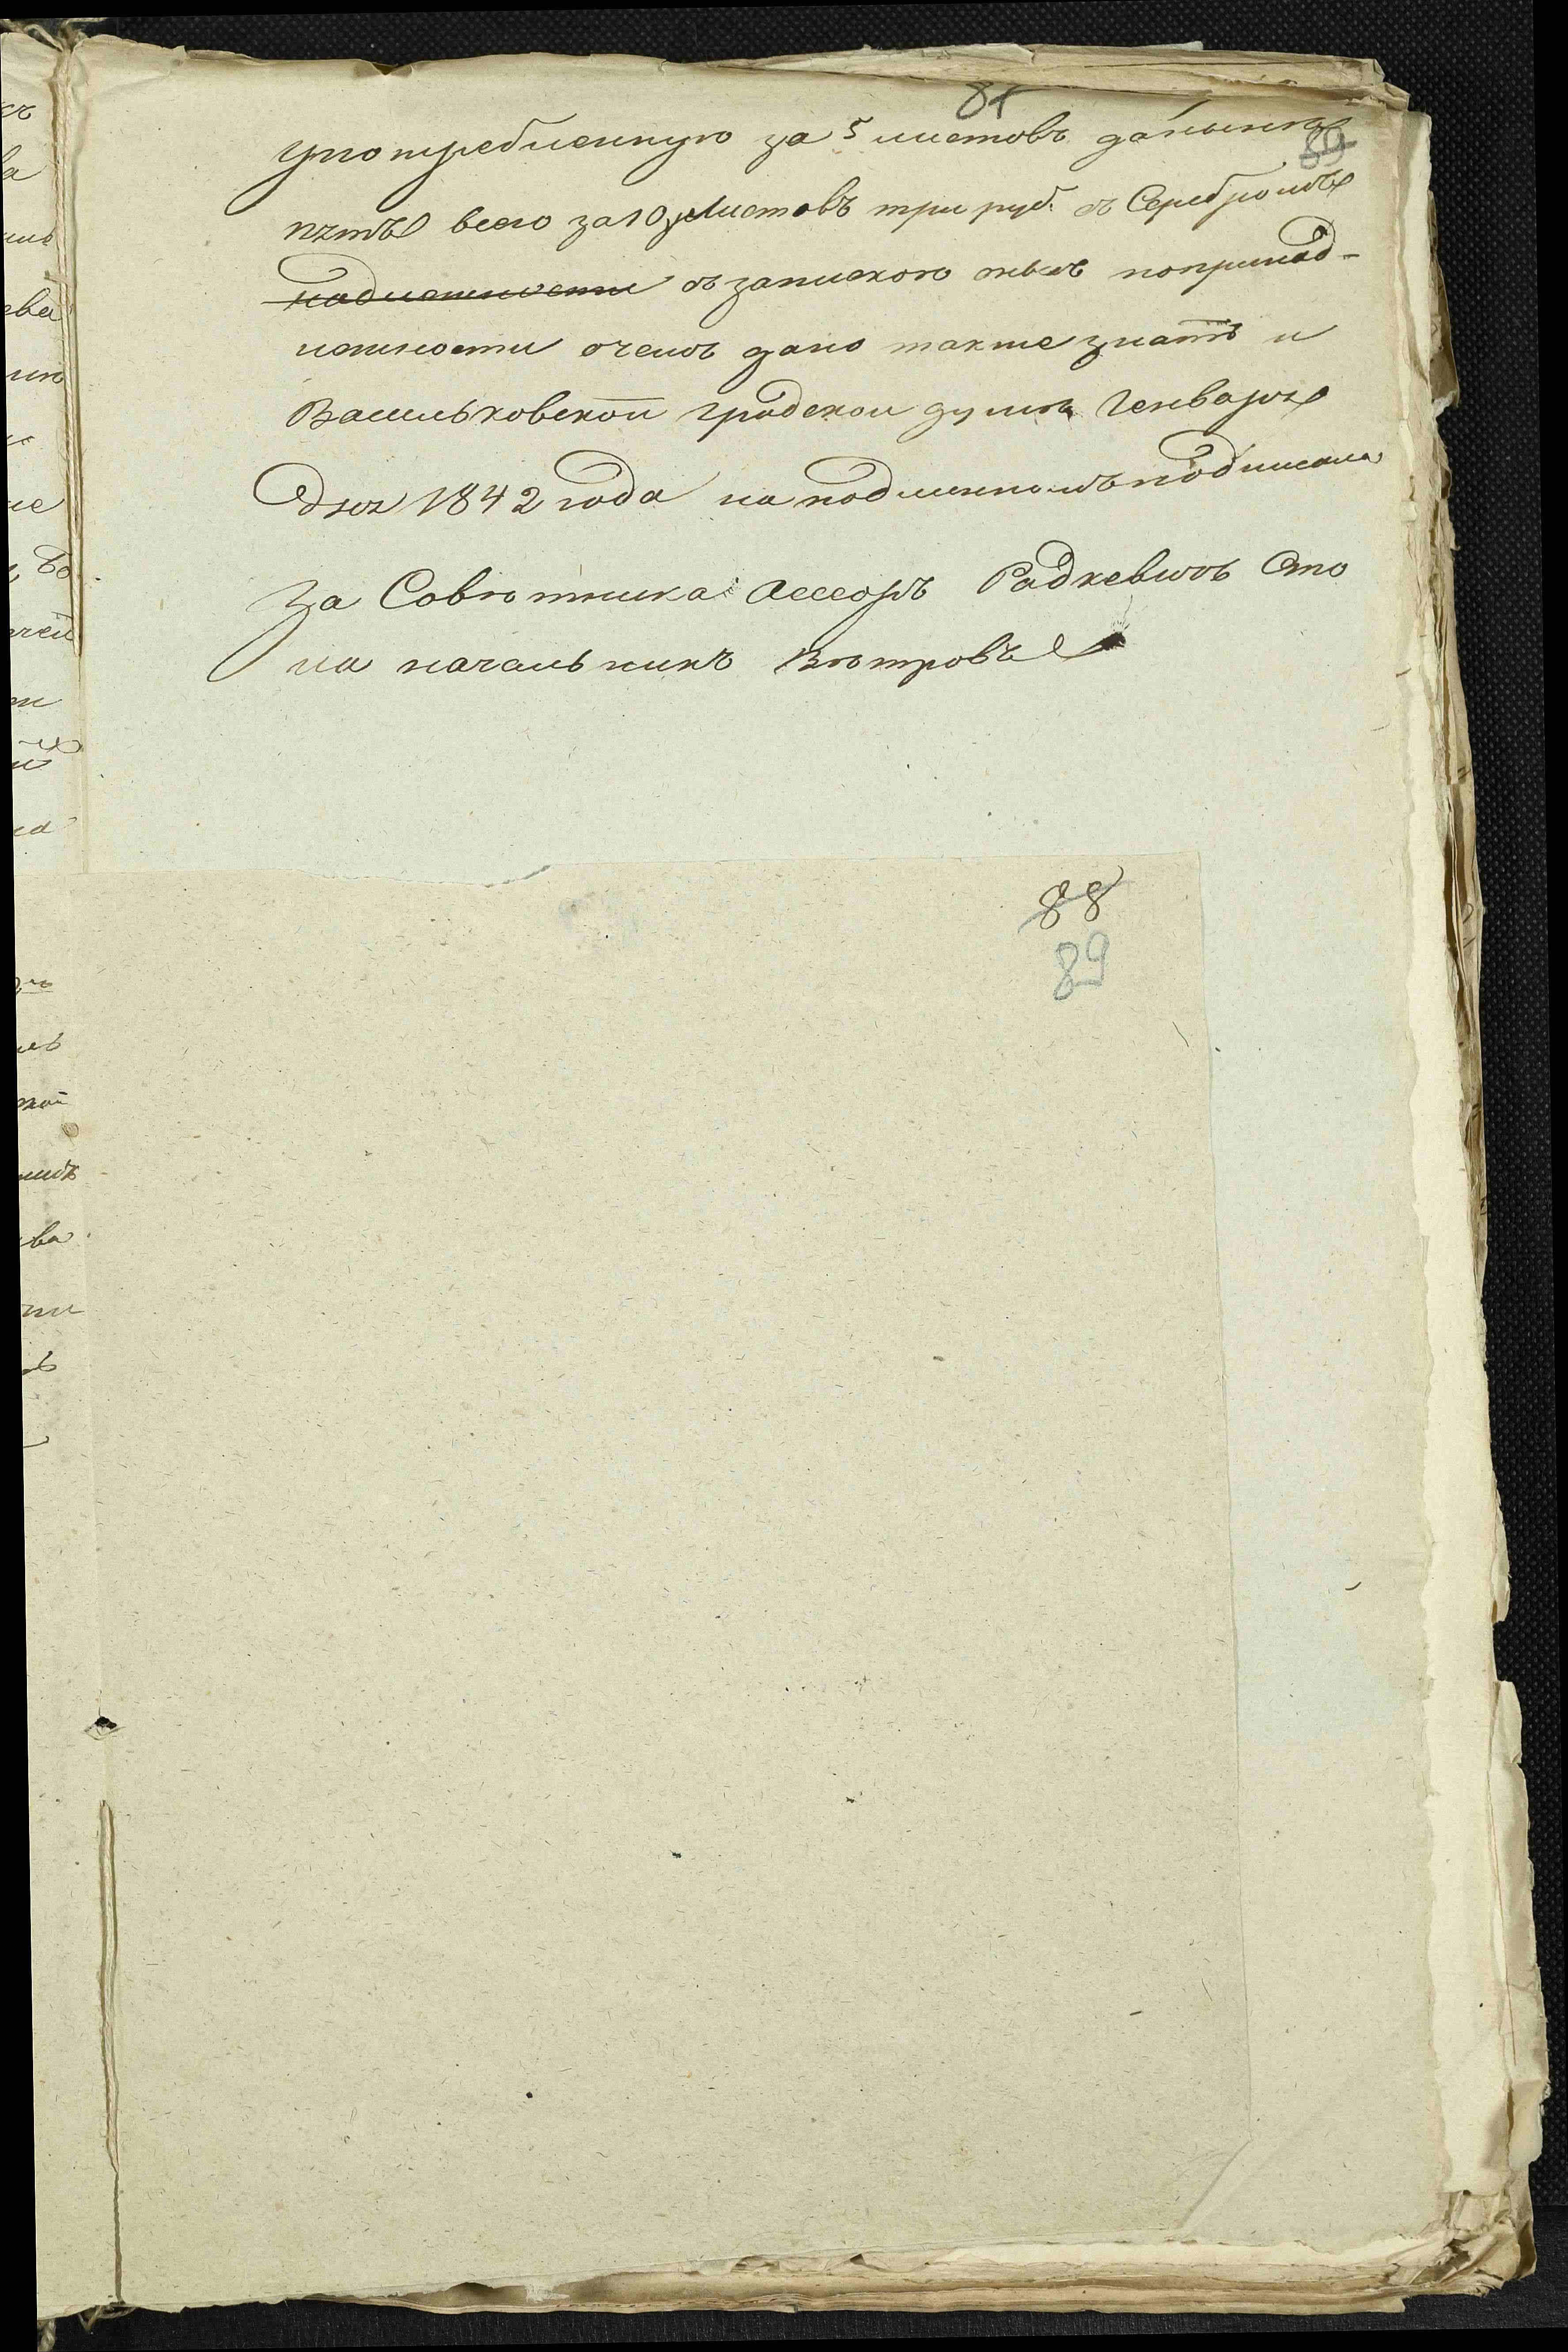 87
употребленную за 5 листовъ данныхъ
89
пять всего за 10 листовъ три руб. съ Серебромъ
надлежности съ запискою оныхъ попринад-
лежности о чемъ дано также знать и
Васильковской градской думѣ Генваря
дня 1842 года на подлинномъ подписали
За Совѣтника Асесоръ Радкевичъ Сто
ла начальникъ Вѣтровъ
88
89